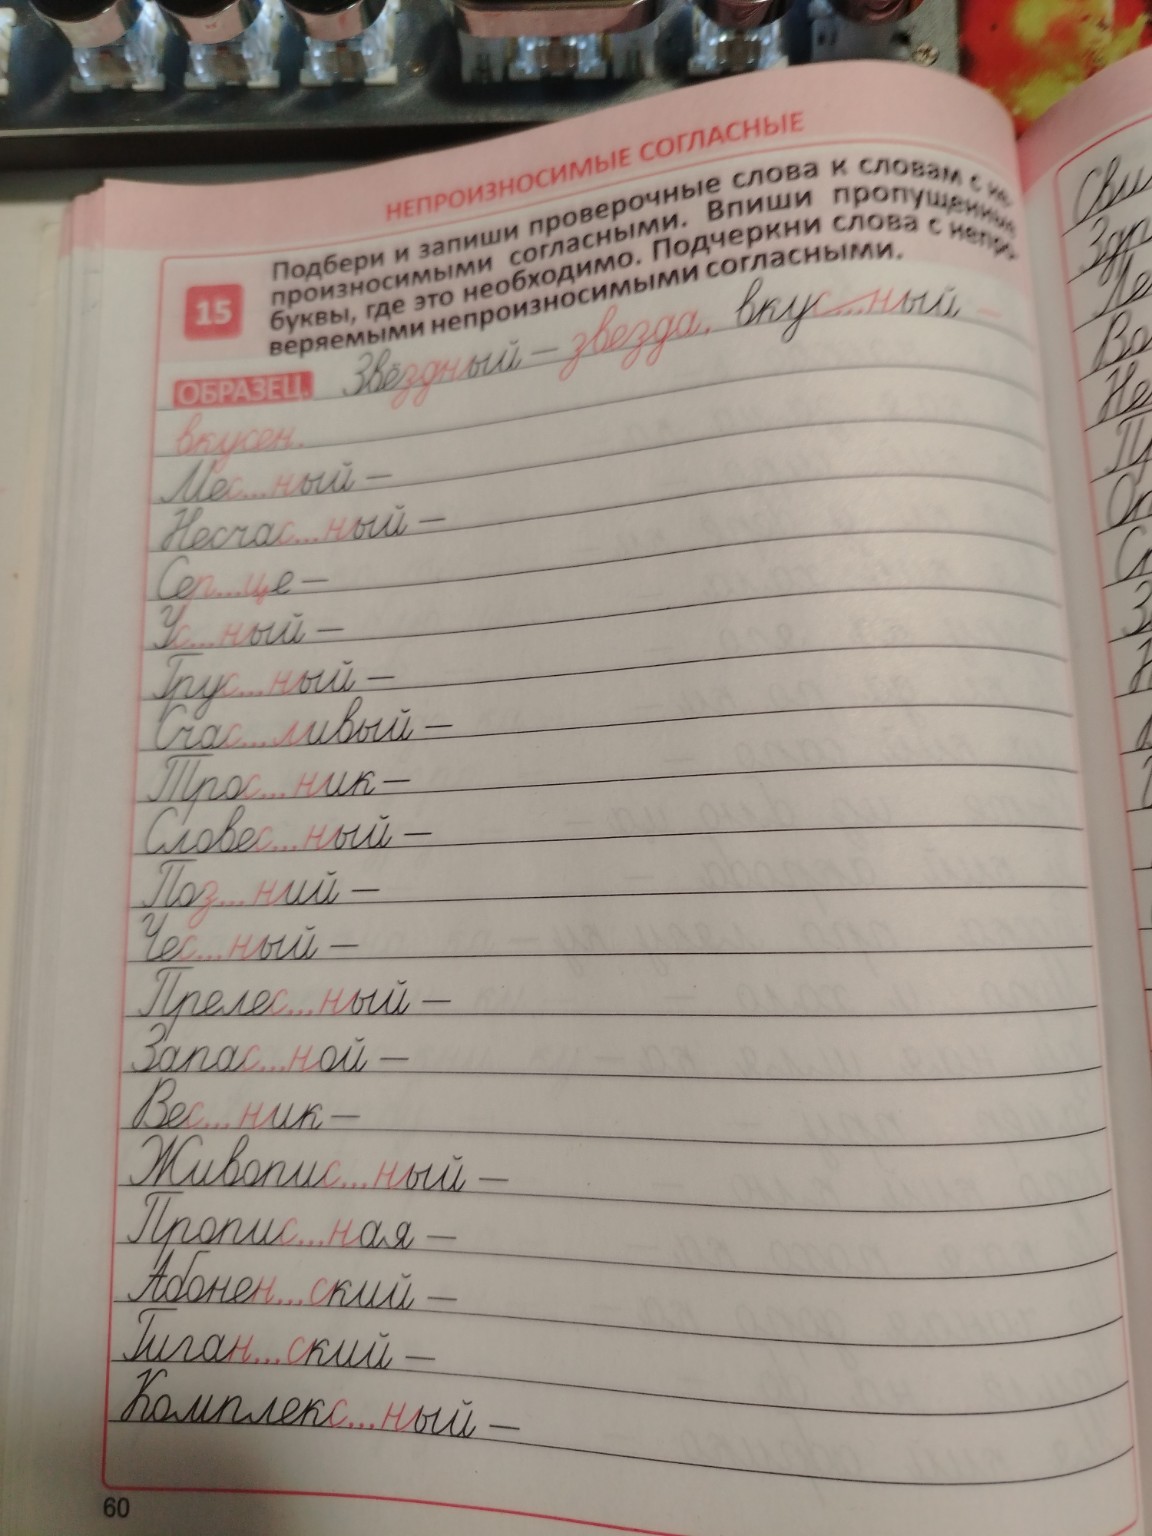 НЕПРОИЗНОСИМЫЕ СОГЛАСНЫЕ
15
Подбери и запиши проверочные слова к словам с не-
произносимыми согласными. Впиши пропущенные
буквы, где это необходимо. Подчеркни слова с непро-
веряемыми непроизносимыми согласными.
ОБРАЗЕЦ. Звёздный – звезда, вкус...ный –
вкусен.
Мес...ный –
Несчас...ный –
Сер...це –
Ус...ный –
Грус...ный –
Счас...ливый –
Трос...ник –
Словес...ный –
Поз...ний –
Чес...ный –
Прелес...ный –
Запас...ной –
Вес...ник –
Живопис...ный –
Пропис...ная –
Абонен...ский –
Гиган...ский –
Комплекс...ный –
60